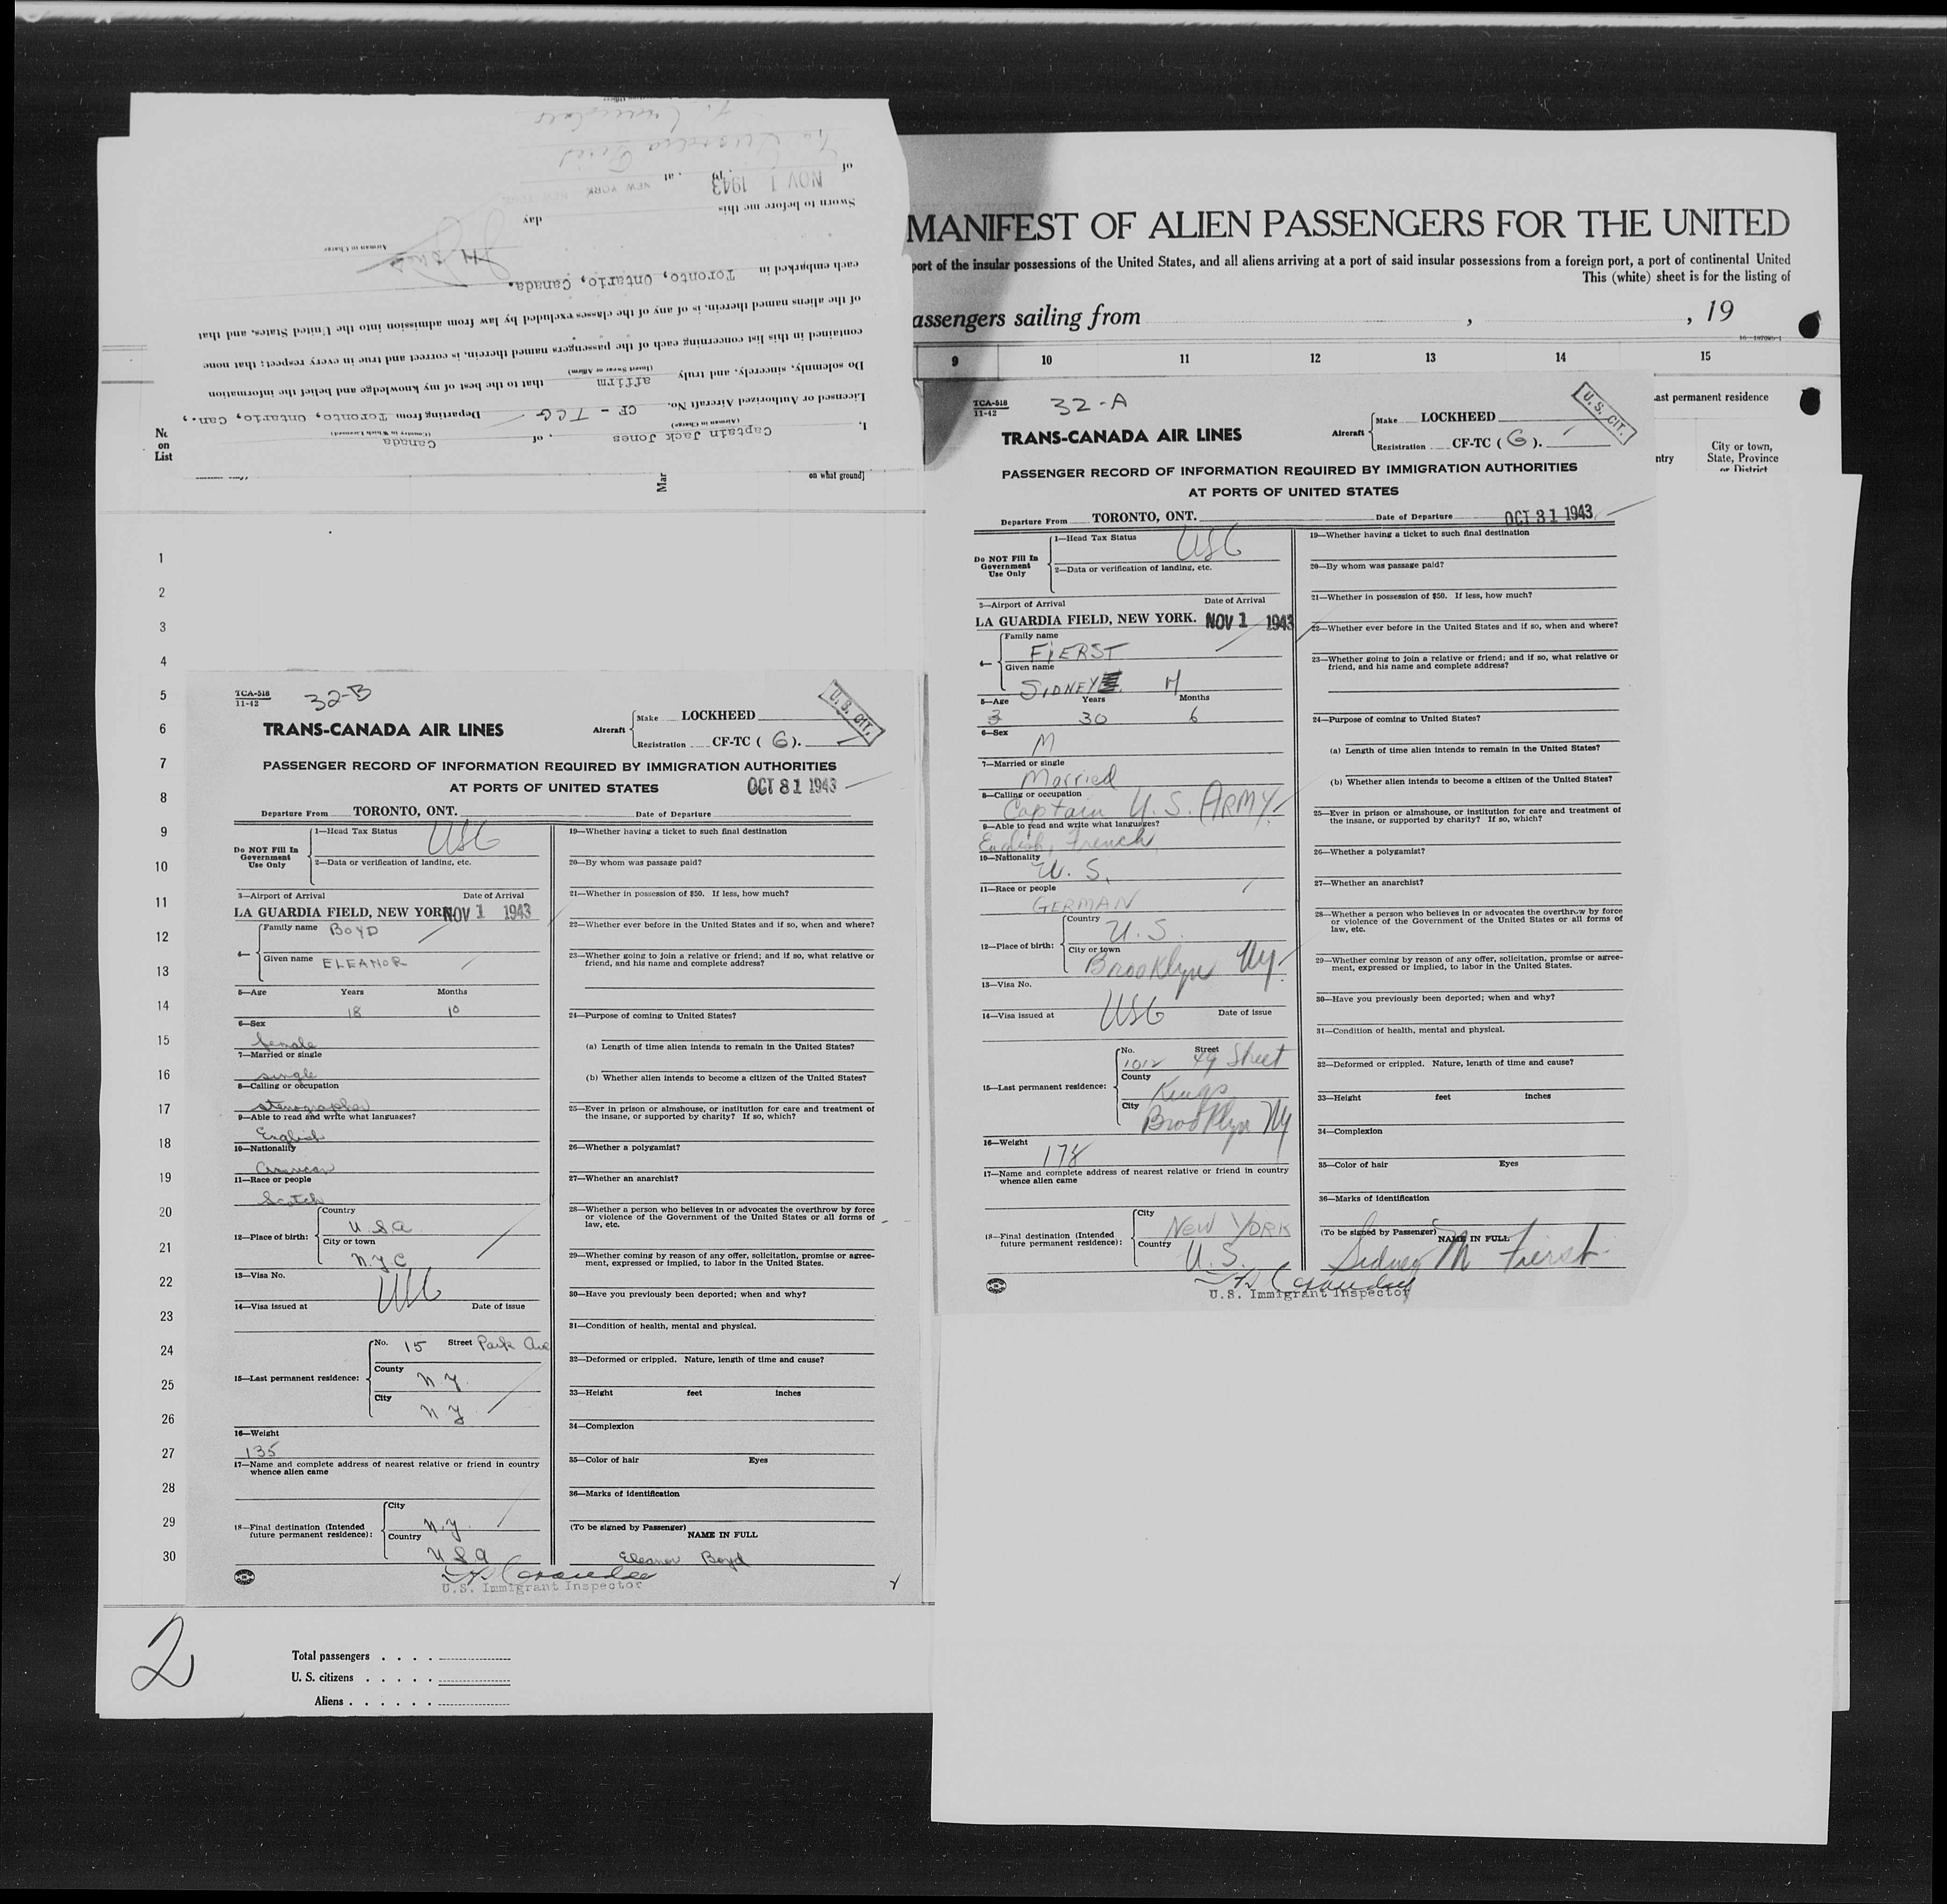 I, Captain Jack Jones, of Canada
(Airman in Charge) (Country in Which Licensed)
Licensed or Authorized Aircraft No. CF - TCG Departing from Toronto, Ontario, Can.,
Do solemnly, sincerely, and truly affirm that to the best of my knowledge and belief the information
(Insert Swear or Affirm)
contained in this list concerning each of the passengers named therein, is correct and true in every respect; that none
of the aliens named therein, is of any of the classes excluded by law from admission into the United States, and that
each embarked in Toronto, Ontario, Canada.
Airman in Charge
Sworn to before me this day
of NOV 1 1943, at
La Guardia Field
No.
on
List
Mar
on what ground]
1
2
3
4
5
6
7
8
9
10
11
12
13
14
15
16
17
18
19
20
21
22
23
24
25
26
27
28
29
30
TCA-518
11-42
32-B
U.S. CIT.
TRANS-CANADA AIR LINES
Aircraft
Make LOCKHEED
Registration CF-TC ( G ).
PASSENGER RECORD OF INFORMATION REQUIRED BY IMMIGRATION AUTHORITIES
AT PORTS OF UNITED STATES
OCT 31 1943
Departure From TORONTO, ONT. Date of Departure
Do NOT Fill In
Government
Use Only
1—Head Tax Status USC
2—Data or verification of landing, etc.
3—Airport of Arrival Date of Arrival
LA GUARDIA FIELD, NEW YORK NOV 1 1943
4— Family name BOYD
Given name ELEANOR
5—Age Years Months
18 10
6—Sex
female
7—Married or single
single
8—Calling or occupation
stenographer
9—Able to read and write what languages?
English
10—Nationality
American
11—Race or people
Scotch
12—Place of birth:
Country
USA
City or town
N.Y.C
13—Visa No.
USC
14—Visa issued at Date of issue
15—Last permanent residence:
No. 15 Street Park Ave
County
N.Y.
City
N Y
16—Weight
135
17—Name and complete address of nearest relative or friend in country
whence alien came
18—Final destination (Intended
future permanent residence):
City
N.Y.
Country
USA
19—Whether having a ticket to such final destination
20—By whom was passage paid?
21—Whether in possession of $50. If less, how much?
22—Whether ever before in the United States and if so, when and where?
23—Whether going to join a relative or friend; and if so, what relative or
friend, and his name and complete address?
24—Purpose of coming to United States?
(a) Length of time alien intends to remain in the United States?
(b) Whether alien intends to become a citizen of the United States?
25—Ever in prison or almshouse, or institution for care and treatment of
the insane, or supported by charity? If so, which?
26—Whether a polygamist?
27—Whether an anarchist?
28—Whether a person who believes in or advocates the overthrow by force
or violence of the Government of the United States or all forms of
law, etc.
29—Whether coming by reason of any offer, solicitation, promise or agree-
ment, expressed or implied, to labor in the United States.
30—Have you previously been deported; when and why?
31—Condition of health, mental and physical.
32—Deformed or crippled. Nature, length of time and cause?
33—Height feet inches
34—Complexion
35—Color of hair Eyes
36—Marks of identification
(To be signed by Passenger)
NAME IN FULL
Eleanor Boyd
U.S. Immigrant Inspector
2
Total passengers
U. S. citizens
Aliens
MANIFEST OF ALIEN PASSENGERS FOR THE UNITED
port of the insular possessions of the United States, and all aliens arriving at a port of said insular possessions from a foreign port, a port of continental United
This (white) sheet is for the listing of
assengers sailing from , , 19
9 10 11 12 13 14 15
ast permanent residence
ntry
City or town,
State, Province
or District
TCA-518
11-42
32-A
U.S. CIT.
TRANS-CANADA AIR LINES
Aircraft
Make LOCKHEED
Registration CF-TC ( G ).
PASSENGER RECORD OF INFORMATION REQUIRED BY IMMIGRATION AUTHORITIES
AT PORTS OF UNITED STATES
Departure From TORONTO, ONT. Date of Departure OCT 31 1943
Do NOT Fill In
Government
Use Only
1—Head Tax Status USC
2—Data or verification of landing, etc.
3—Airport of Arrival Date of Arrival
LA GUARDIA FIELD, NEW YORK. NOV 1 1943
4— Family name
FIERST
Given name
SIDNEY M
5—Age Years Months
3 30 6
6—Sex
M
7—Married or single
Married
8—Calling or occupation
Captain U.S. ARMY
9—Able to read and write what languages?
English, French
10—Nationality
U.S.
11—Race or people
GERMAN
12—Place of birth:
Country
U.S.
City or town
Brooklyn Ny.
13—Visa No.
14—Visa issued at USC Date of issue
15—Last permanent residence:
No. Street
1012 49 Street
County
Kings
City
Brooklyn Ny
16—Weight
178
17—Name and complete address of nearest relative or friend in country
whence alien came
18—Final destination (Intended
future permanent residence):
City
NEW YORK
Country
U.S.
19—Whether having a ticket to such final destination
20—By whom was passage paid?
21—Whether in possession of $50. If less, how much?
22—Whether ever before in the United States and if so, when and where?
23—Whether going to join a relative or friend; and if so, what relative or
friend, and his name and complete address?
24—Purpose of coming to United States?
(a) Length of time alien intends to remain in the United States?
(b) Whether alien intends to become a citizen of the United States?
25—Ever in prison or almshouse, or institution for care and treatment of
the insane, or supported by charity? If so, which?
26—Whether a polygamist?
27—Whether an anarchist?
28—Whether a person who believes in or advocates the overthrow by force
or violence of the Government of the United States or all forms of
law, etc.
29—Whether coming by reason of any offer, solicitation, promise or agree-
ment, expressed or implied, to labor in the United States.
30—Have you previously been deported; when and why?
31—Condition of health, mental and physical.
32—Deformed or crippled. Nature, length of time and cause?
33—Height feet inches
34—Complexion
35—Color of hair Eyes
36—Marks of identification
(To be signed by Passenger)
NAME IN FULL
Sidney M Fierst
U.S. Immigrant Inspector